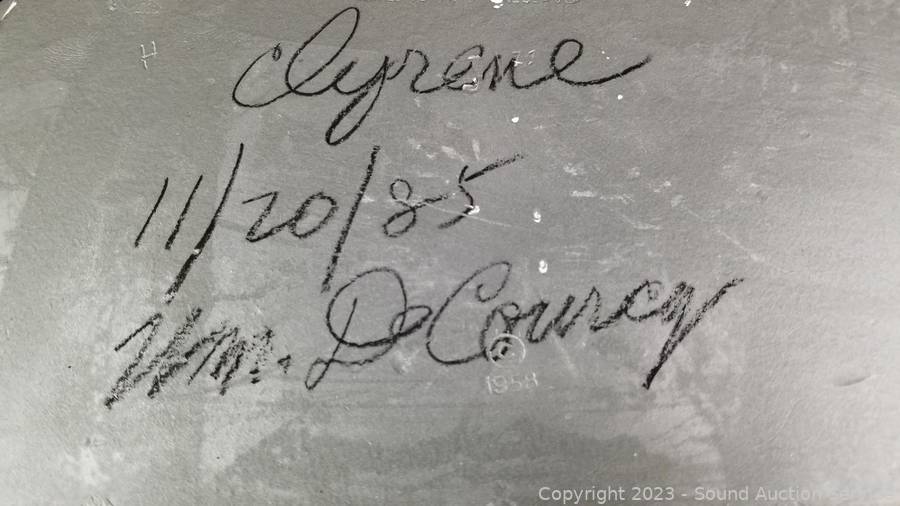 H
Clyrene
11/20/85
Wm. DeCoursey
©
1958
Copyright 2023 - Sound Auction Service